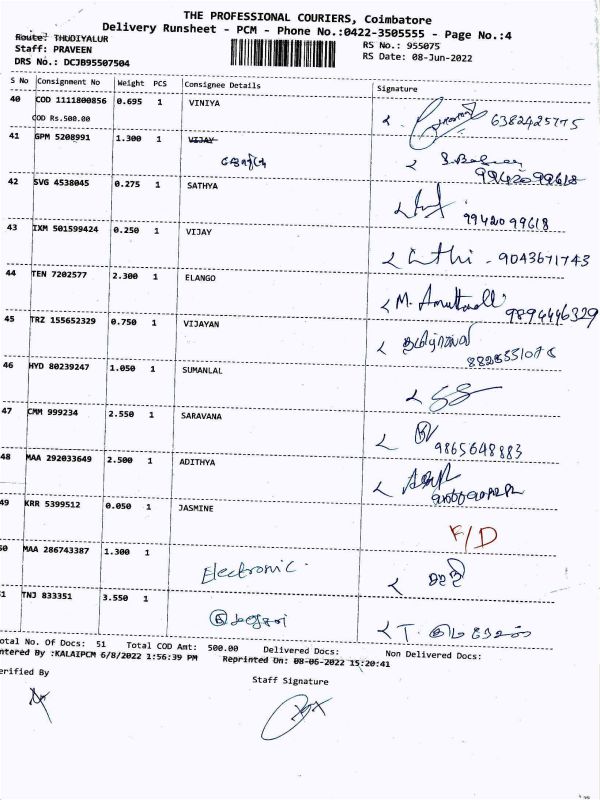 THE PROFESSIONAL COURIERS, Coimbatore
Delivery Runsheet - PCM - Phone No.:0422-3505555 - Page No.:4
Route: THUDIYALUR
Staff: PRAVEEN
RS No.: 955075
DRS No.: DCJB95507504
RS Date: 08-Jun-2022
S No Consignment No Weight PCS Consignee Details Signature
40 COD 1111800856 0.695 1 VINIYA
COD Rs.500.00 6382425775
41 GPM 5208991 1.300 1 VIJAY
99420 99618
42 SVG 4538045 0.275 1 SATHYA
99420 99618
43 IXM 501599424 0.250 1 VIJAY
- 9043671743
44 TEN 7202577 2.300 1 ELANGO
M. 9894446329
45 TRZ 155652329 0.750 1 VIJAYAN
46 HYD 80239247 1.050 1 SUMANLAL
47 CMM 999234 2.550 1 SARAVANA
9865648883
48 MAA 292033649 2.500 1 ADITHYA
49 KRR 5399512 0.050 1 JASMINE
F/D
50 MAA 286743387 1.300 1
Electronic.
51 TNJ 833351 3.550 1
T.
Total No. Of Docs: 51 Total COD Amt: 500.00 Delivered Docs: Non Delivered Docs:
Entered By :KALAIPCM 6/8/2022 1:56:39 PM Reprinted On: 08-06-2022 15:20:41
Verified By Staff Signature